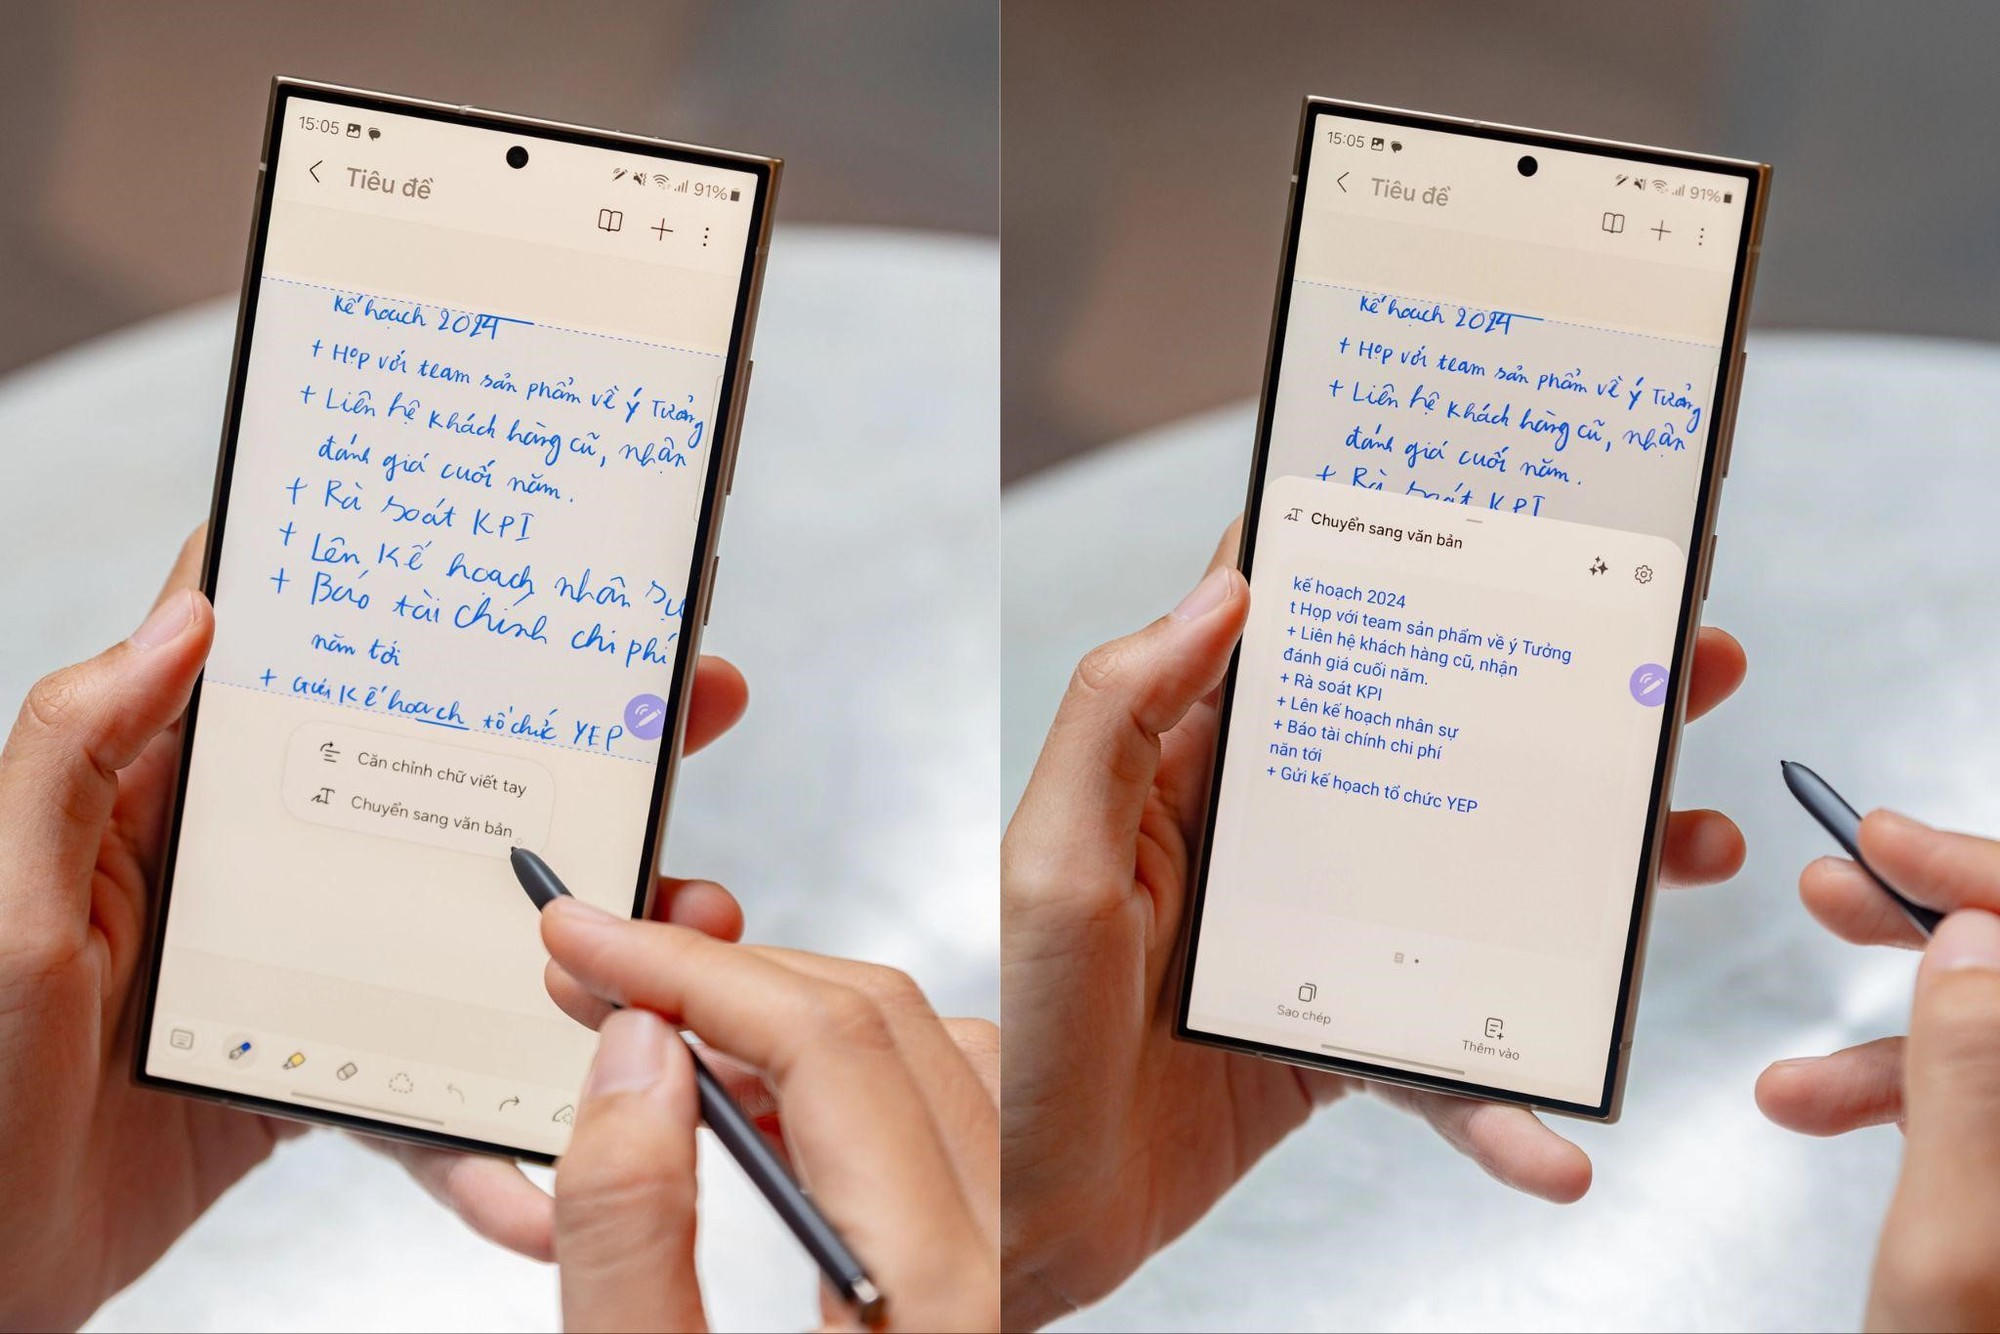 15:05
91%
Tiêu đề
Kế hoạch 2024
+ Họp với team sản phẩm về ý Tưởng
+ Liên hệ khách hàng cũ, nhận
đánh giá cuối năm.
+ Rà soát KPI
+ Lên kế hoạch nhân sự
+ Báo tài chính chi phí
năm tới
+ Gửi kế hoạch tổ chức YEP
Căn chỉnh chữ viết tay
Chuyển sang văn bản
15:05
91%
Tiêu đề
Kế hoạch 2024
+ Họp với team sản phẩm về ý Tưởng
+ Liên hệ khách hàng cũ, nhận
đánh giá cuối năm.
+ Rà soát KPI
Chuyển sang văn bản
kế hoạch 2024
t Họp với team sản phẩm về ý Tưởng
+ Liên hệ khách hàng cũ, nhận
đánh giá cuối năm.
+ Rà soát KPI
+ Lên kế hoạch nhân sự
+ Báo tài chính chi phí
năn tới
+ Gửi kế họach tổ chức YEP
Sao chép
Thêm vào